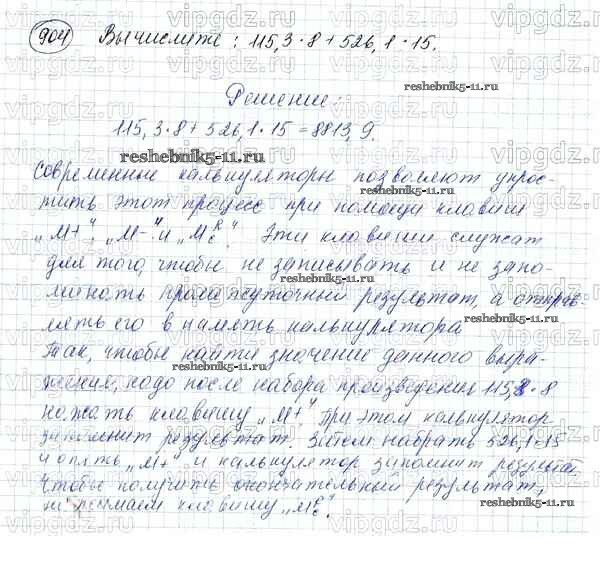 904 Вычислите: 115,3·8+526,1·15.
reshebnik5-11.ru
Решение:
115,3·8+526,1·15=8813,9.
reshebnik5-11.ru
Современные калькуляторы позволяют упрос-
тить этот процесс при помощи клавиш
„М+", „М-" и „МRc". Эти клавиши служат
для того, чтобы не записывать и не запо-
минать промежуточный результат, а отправ-
лять его в память калькулятора
reshebnik5-11.ru
Так, чтобы найти значение данного выра-
reshebnik5-11.ru
жения, надо после набора произведения 115,3·8
нажать клавишу „М+" При этом калькулятор
запомнит результат. Затем набрать 526,1·15
и опять „М+" и калькулятор запомнит результат
Чтобы получить окончательный результат,
reshebnik5-11.ru
нажимаем клавишу „МRc.
vipgdz.ru